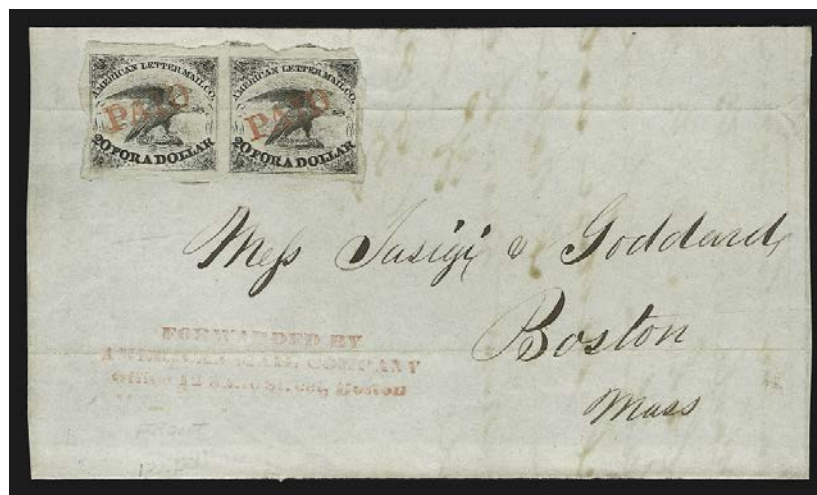 AMERICAN LETTER MAIL CO.
PAID
20 FOR A DOLLAR
AMERICAN LETTER MAIL CO.
PAID
20 FOR A DOLLAR
Mess Iasigi & Goddard
Boston
Mass
FORWARDED BY
AMERICAN MAIL COMPANY
Office 12 State Street, Boston